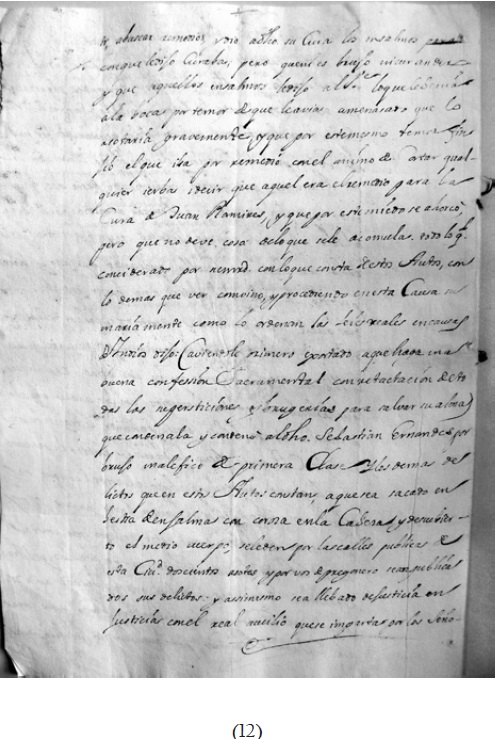 a buscar remedios y dio a dho su Cura los ensalmos
con que le hiso Curaba, pero que ni es brujo
y que aquellos ensalmos hiso al Sr lo que le benia
a la boca por temor de que le avia amenasado que lo
asotaria gravemente, y que por este mesmo temor fin
gio el que iba por remedio con el animo de Cortar qual
quier ierba i decir que aquel era el remedio para la
Cura de Juan Ramires, y que por este miedo se ahorcò,
pero que no deve cosa de lo que se le acomula. todo lo q.
considerado por su md. con lo que consta de estos Autos, con
lo demas que ver convino, y procediendo en esta Causa su
mariamente como lo ordenan las leies reales en causas
de Indios dijo: Caviendole primero exortado a que haga una
buena confession Sacramental con retactacion de to
das las supersticiones y brugerias para salvar su alma
que condenaba y condenò al dho. Sebastian Ernandes por
brujo malefico de primera Clase y los demas de
lictos que en estos Autos constan, a que sea sacado en
bestia de enjalma con corosa en la Cabeza y descubier
to el medio cuerpo, se le den por las calles publicas de
esta Ciud. doscientos asotes y por vos de pregonero sean publica
dos sus delitos; y assimismo sea llebado de Justicia en
Justicia con el real auxilio que se impartira por los Seño-
(12)